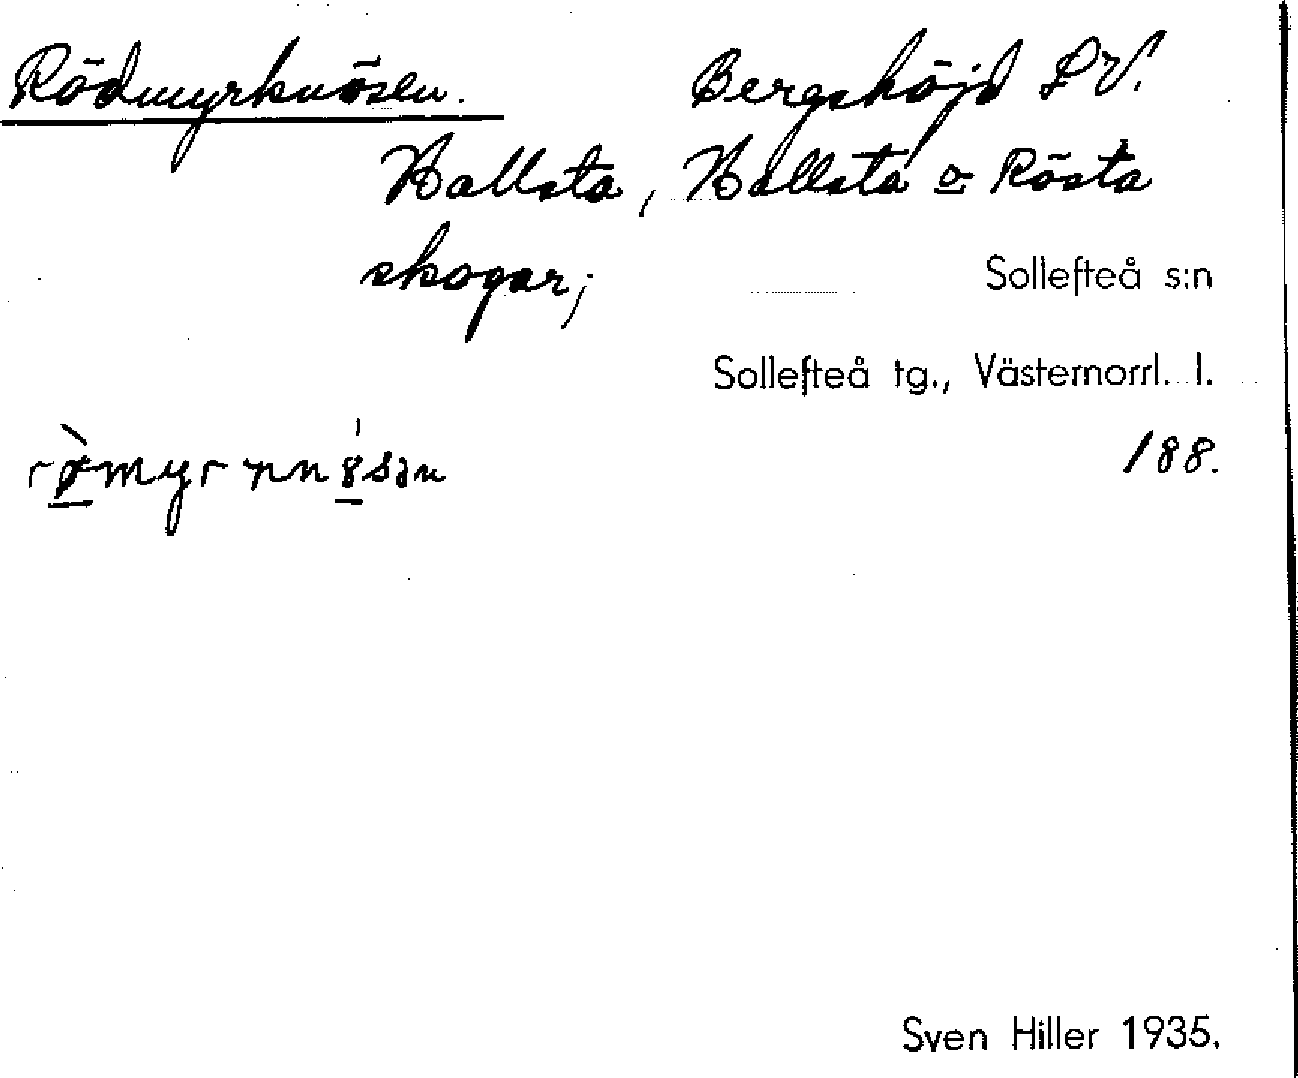 Rödmyrknösen. Bergshöjd SV.
Hallsta, Hållsta o Rösta
skogar; Sollefteå s:n
Sollefteå tg., Västernorrl. l.
188.
Sven Hiller 1935.